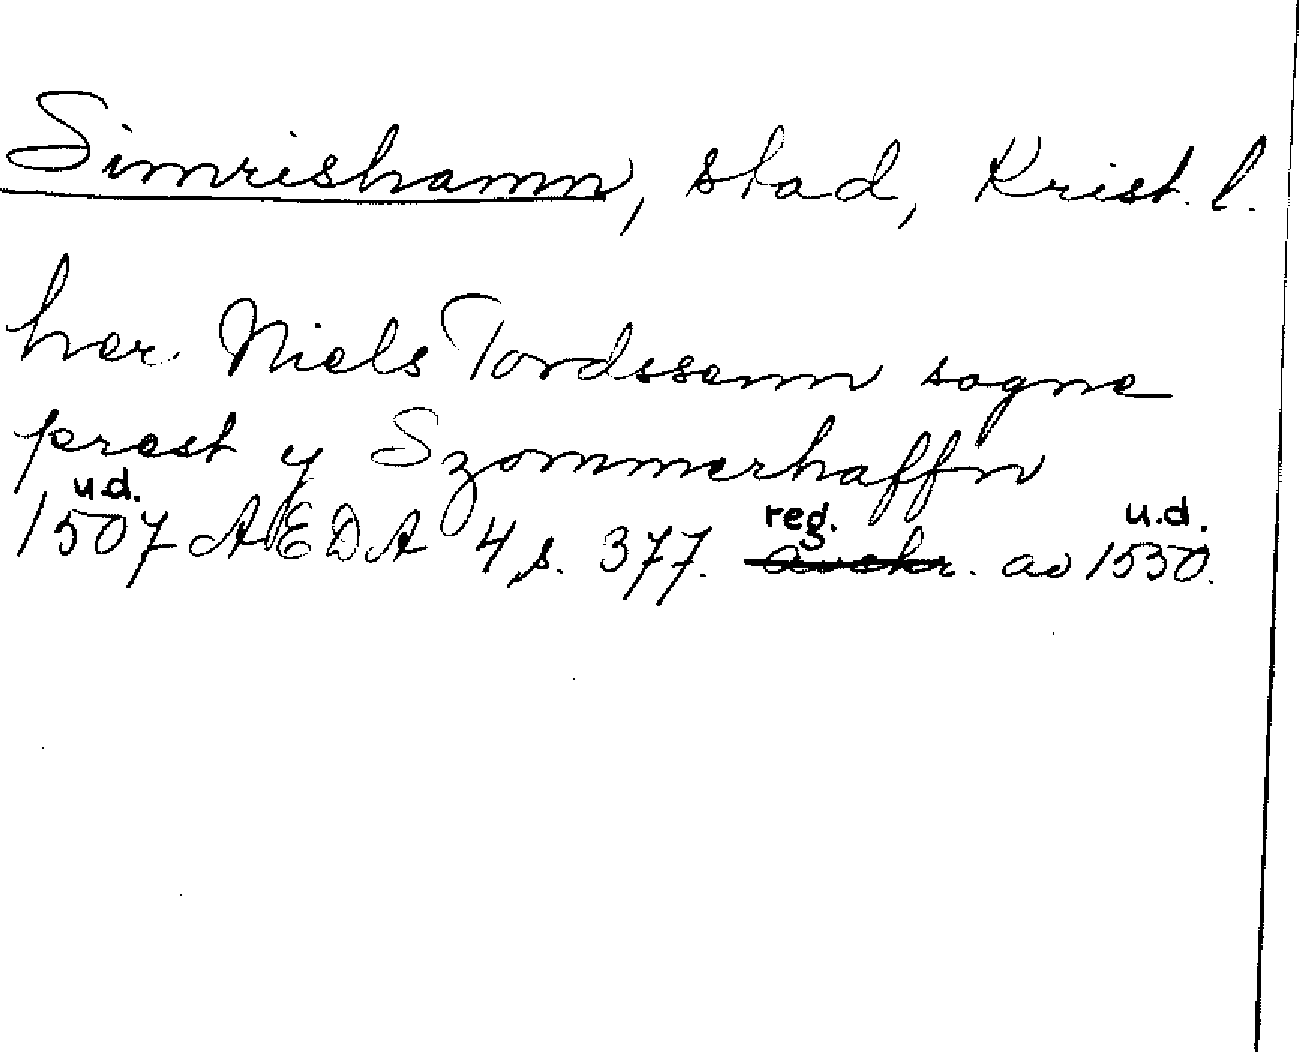 Simrishamn, stad, Krist. l.
her Niels Tordssenn sogne
prest y Szommerhaffn
u.d. reg. u.d.
1507 AEDA 4, s. 377. avskr. av 1550.